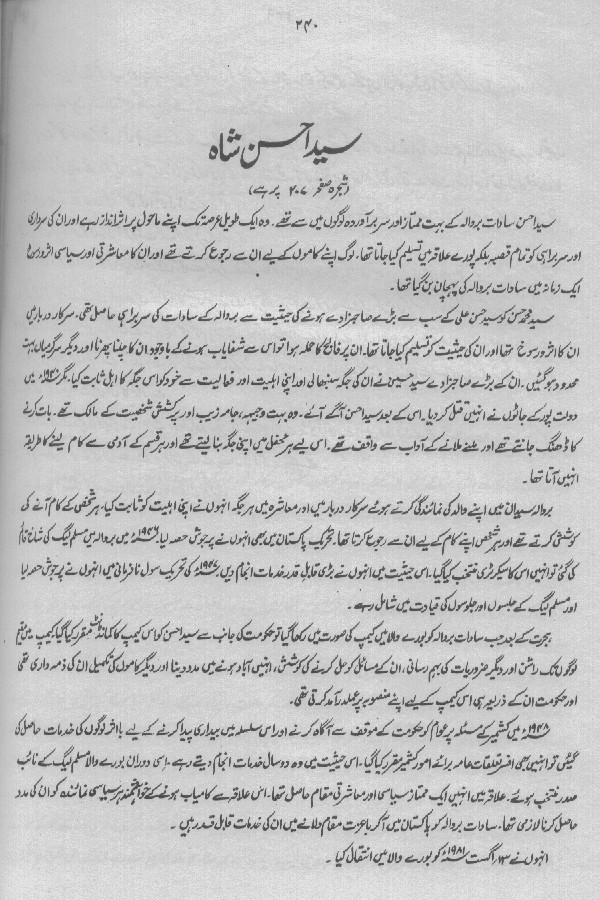 ۲۴۰
سید احسن شاہ
(شجرہ صفحہ ۲۰۷ پر ہے)
سید احسن سادات بروالہ کے بہت ممتاز اور سربرآوردہ لوگوں میں سے تھے۔ وہ ایک طویل عرصہ تک اپنے ماحول پر اثر انداز رہے اور ان کی سرداری
اور سربراہی کو تمام قصبہ بلکہ پورے علاقہ میں تسلیم کیا جاتا تھا۔ لوگ اپنے کاموں کے لیے ان سے رجوع کرتے تھے اور ان کا معاشرتی اور سیاسی اثر و رسوخ
ایک زمانہ میں سادات بروالہ کی پہچان بن گیا تھا۔
سید محمد حسن کو سید حسن علی کے سب سے بڑے صاحبزادے ہونے کی حیثیت سے بروالہ کے سادات کی سربراہی حاصل تھی۔ سرکار دربار میں
ان کا اثر و رسوخ تھا اور ان کی حیثیت کو تسلیم کیا جاتا تھا۔ ان پر فالج کا حملہ ہوا تو اس سے شفایاب ہونے کے باوجود ان کا چلنا پھرنا اور دیگر سرگرمیاں بہت
محدود ہو گئیں۔ ان کے بڑے صاحبزادے سید حسین نے ان کی جگہ سنبھالی اور اپنی اہلیت اور فعالیت سے خود کو اس جگہ کا اہل ثابت کیا۔ مگر میں
دولت پور کے جاٹوں نے انہیں قتل کر دیا۔ اس کے بعد سید احسن آگے آئے۔ وہ بہت وجیہہ، جامہ زیب اور پرکشش شخصیت کے مالک تھے۔ بات کرنے
کا ڈھنگ جانتے تھے اور ملنے ملانے کے آداب سے واقف تھے۔ اس لیے ہر محفل میں اپنی جگہ بنا لیتے تھے اور ہر قسم کے آدمی سے کام لینے کا طریقہ
انہیں آتا تھا۔
بروالہ سیدان میں اپنے والد کی نمائندگی کرتے ہوئے سرکار دربار میں اور معاشرہ میں ہر جگہ انہوں نے اپنی اہلیت کو ثابت کیا۔ ہر شخص کے کام آنے کی
کوشش کرتے تھے اور ہر شخص اپنے کام کے لیے ان سے رجوع کرتا تھا۔ تحریک پاکستان میں بھی انہوں نے پرجوش حصہ لیا۔ ۱۹۴۶ء میں بروالہ میں مسلم لیگ کی شاخ قائم
کی گئی تو انہیں اس کا سیکرٹری منتخب کیا گیا۔ اس حیثیت میں انہوں نے بڑی قابل قدر خدمات انجام دیں۔ ۱۹۴۷ء کی تحریک سول نافرمانی میں انہوں نے پرجوش حصہ لیا
اور مسلم لیگ کے جلسوں اور جلوسوں کی قیادت میں شامل رہے۔
ہجرت کے بعد جب سادات بروالہ کو بورے والا میں کیمپ کی صورت میں رکھا گیا تو حکومت کی جانب سے سید احسن کو اس کیمپ کا کمانڈنٹ مقرر کیا گیا۔ کیمپ میں مقیم
لوگوں تک راشن اور دیگر ضروریات کی بہم رسانی، ان کے مسائل کو حل کرنے کی کوشش، انہیں آباد ہونے میں مدد دینا اور دیگر کاموں کی تکمیل ان کی ذمہ داری تھی
اور حکومت ان کے ذریعہ ہی اس کیمپ کے لیے اپنے منصوبہ پر عملدرآمد کرتی تھی۔
۱۹۴۸ء میں کشمیر کے مسئلہ پر عوام کو حکومت کے موقف سے آگاہ کرنے اور اس سلسلہ میں بیداری پیدا کرنے کے لیے با اثر لوگوں کی خدمات حاصل کی
گئیں تو انہیں بھی افسر تعلقات عامہ برائے امور کشمیر مقرر کیا گیا۔ اس حیثیت میں وہ دو سال خدمات انجام دیتے رہے۔ اسی دوران بورے والا مسلم لیگ کے نائب
صدر منتخب ہوئے۔ علاقہ میں انہیں ایک ممتاز سیاسی اور معاشرتی مقام حاصل تھا۔ اس علاقہ سے کامیاب ہونے کے خواہشمند ہر سیاسی نمائندہ کو ان کی مدد
حاصل کرنا لازمی تھا۔ سادات بروالہ کو پاکستان میں آ کر باعزت مقام دلانے میں ان کی خدمات قابل قدر ہیں۔
انہوں نے ۱۳ اگست ۱۹۸۱ء کو بورے والا میں انتقال کیا۔